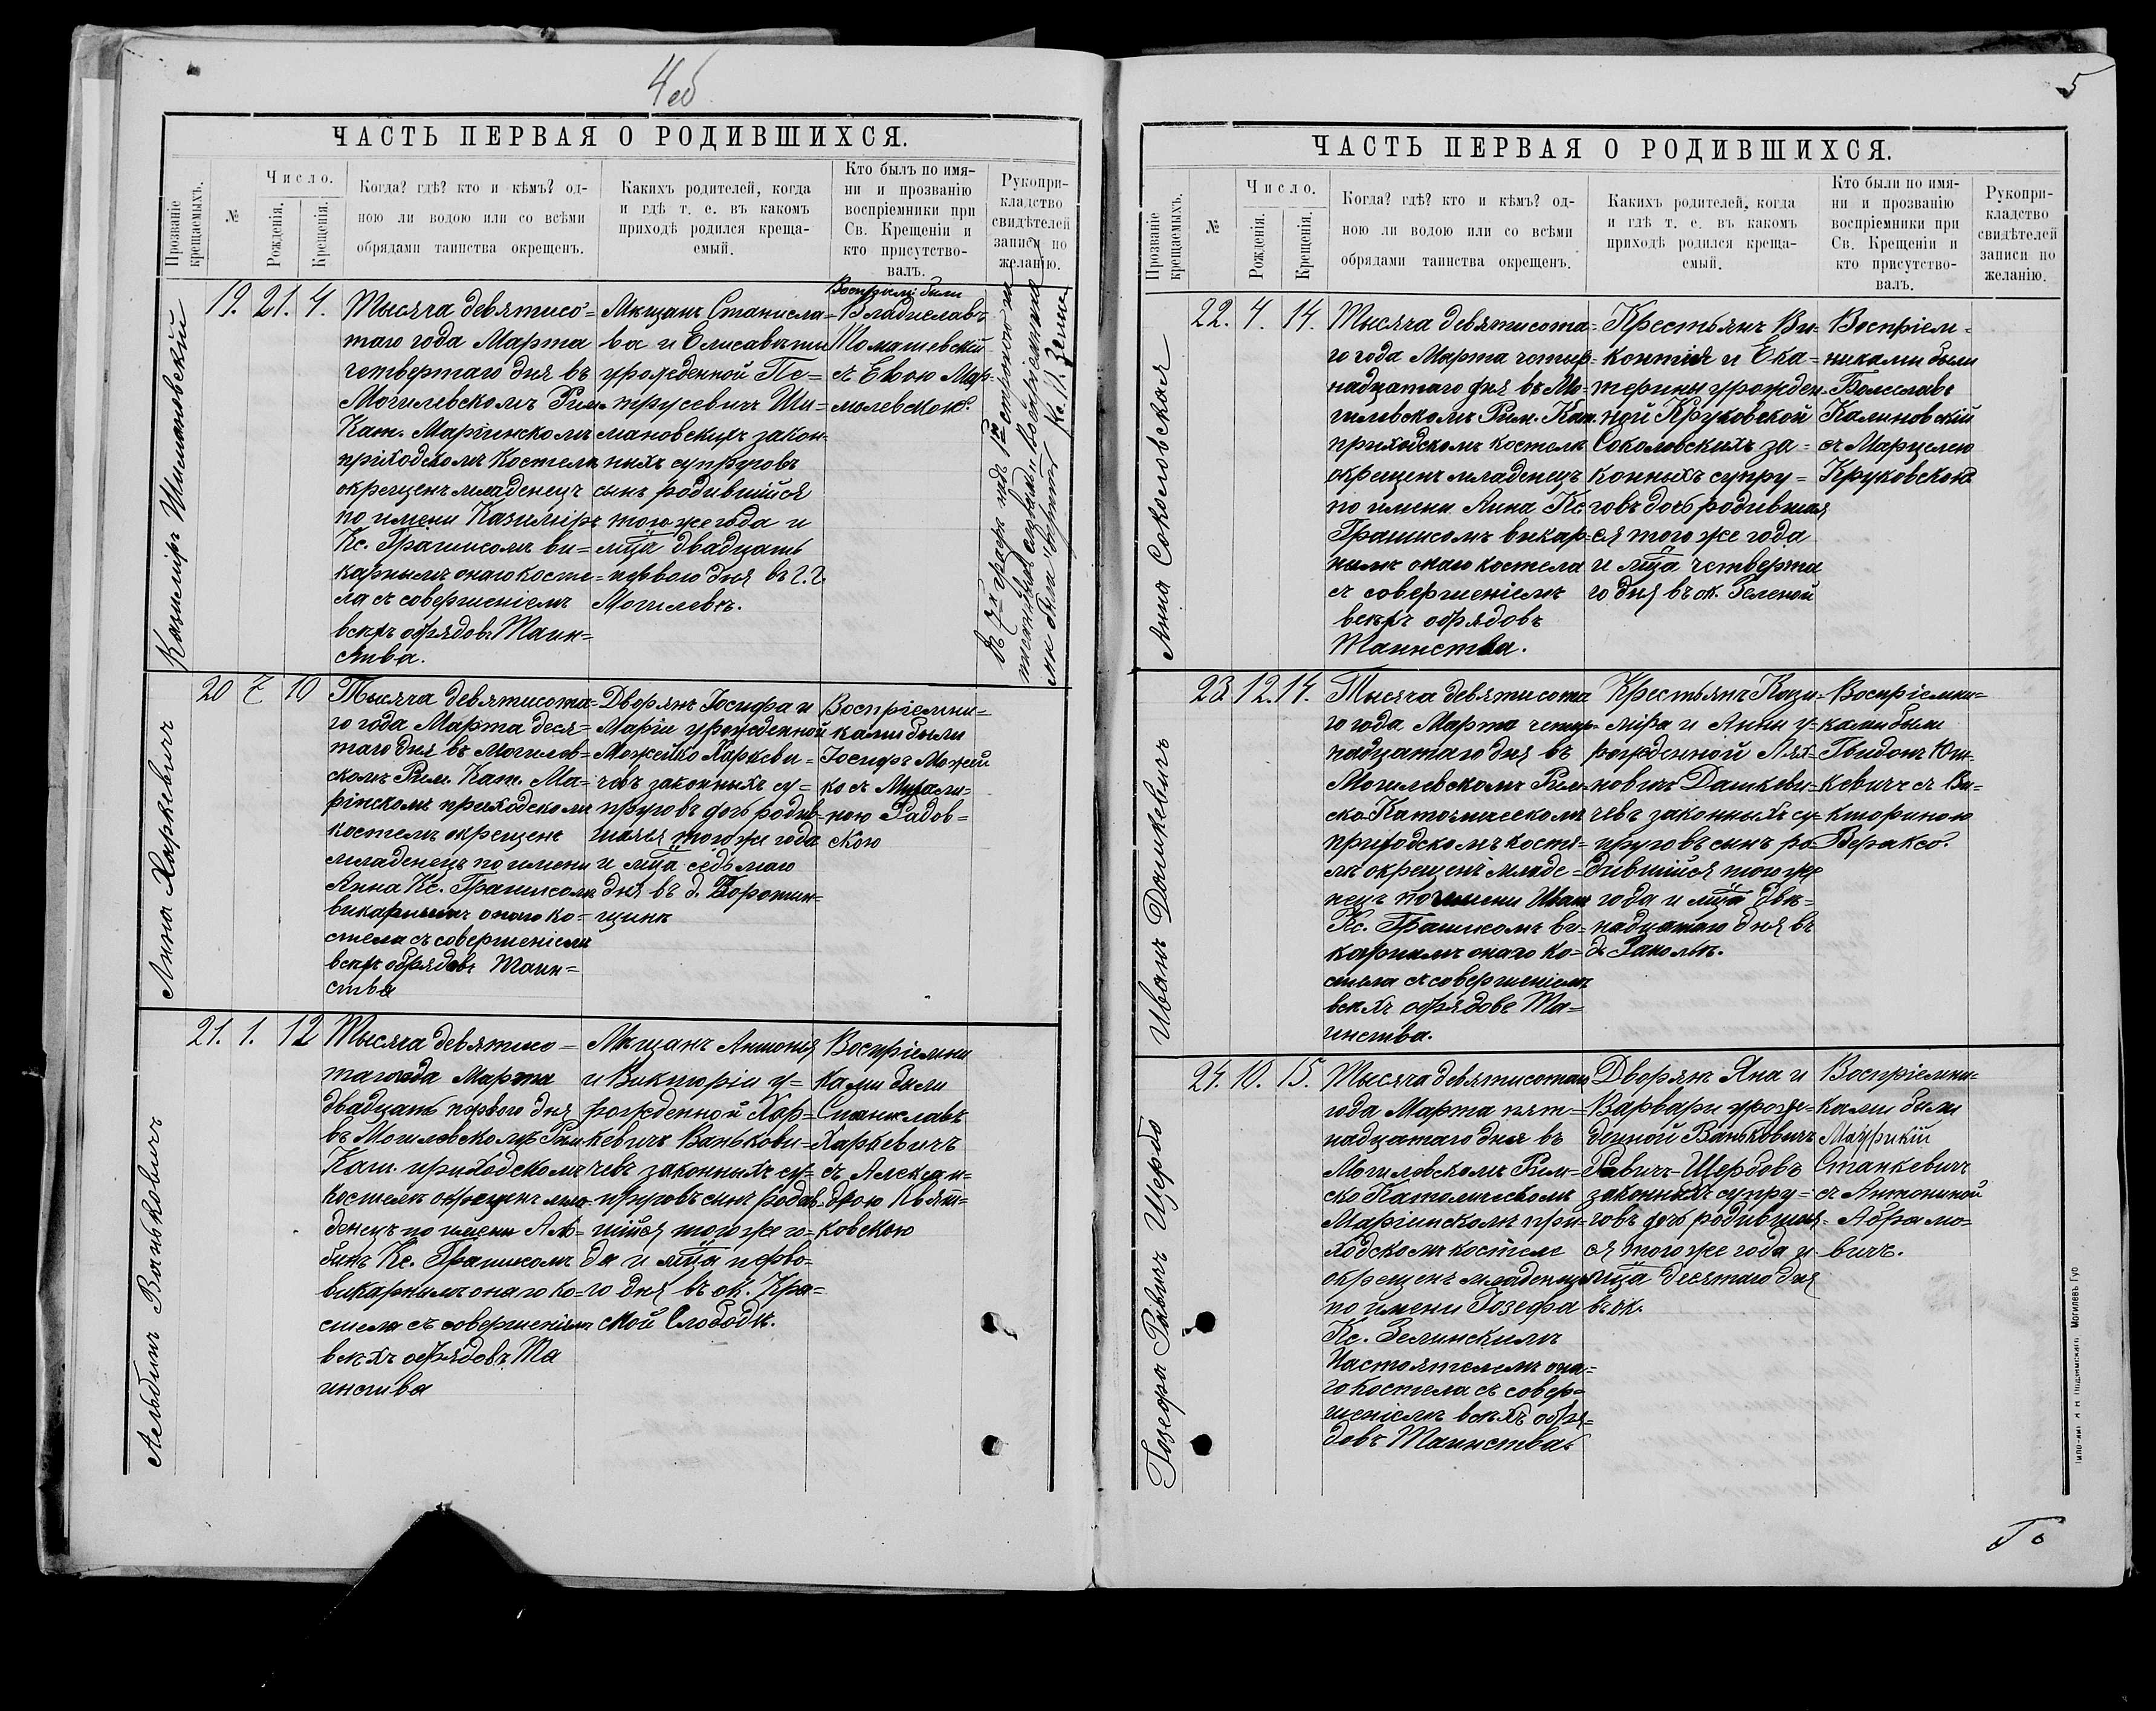 4об
ЧАСТЬ ПЕРВАЯ О РОДИВШИХСЯ.
Прозваніе крещаемыхъ.
№
Число.
Рожденія.
Крещенія.
Когда? гдѣ? кто и кѣмъ? од-
ною ли водою или со всѣми
обрядами таинства окрещенъ.
Какихъ родителей, когда
и гдѣ т. е. въ какомъ
приходѣ родился креща-
емый.
Кто былъ по имя-
ни и прозванію
воспріемники при
Св. Крещеніи и
кто присутство-
валъ.
Рукопри-
кладство
свидѣтелей
записи по
желанію.
Казимиръ Шимановскій
19. 21. 4.
Тысяча девятисо=
таго года Марта
четвертаго дня въ
Могилевскомъ Рим.
Кат. Маріинскомъ
приходскомъ Костелѣ
окрещенъ младенецъ
по имени Казимиръ
Кс. Грашисомъ ви=
карнымъ онаго косте=
ла съ совершеніемъ
всѣхъ обрядовъ Таин=
ства.
Мѣщанъ Станисла=
ва и Елисаветы
урожденной Пе=
трусевичъ Ши=
мановскихъ закон=
ныхъ супруговъ
сынъ родившійся
того же года и
мца двадцать
первого дня въ г. г.
Могилевѣ.
были
Владиславъ
Томашевскій
съ Евою Мар-
Анна Харкевичъ
20 7 10
Тысяча девятисота=
го года Марта деся=
таго дня въ Могилев=
скомъ Рим. Кат. Ма=
ріинскомъ приходскомъ
костелѣ окрещенъ
младенецъ по имени
Анна Кс. Грашисомъ
викарнымъ онаго ко=
стела съ совершеніемъ
всѣхъ обрядовъ Таин=
ства
Дворянъ Іосифа и
Маріи урожденной
Можейко Харкеви=
чевъ законныхъ су=
пруговъ дочь родив=
шаяся того же года
и мца седьмаго
дня въ д.
Воспріемни=
ками были
Іосифъ Можей
ко съ Михали=
ною Радов=
скою
Альбинъ Ваньковичъ
21. 1. 12
Тысяча девятисо=
таго года Марта
двадцать первого дня
въ Могилевскомъ Рим
Кат. приходскомъ
костелѣ окрещенъ мла=
денецъ по имени Аль=
бинъ Кс. Грашисомъ
викарнымъ онаго ко=
стела съ совершеніемъ
всѣхъ обрядовъ Та
инства
Мѣщанъ Антонія
и Викторіи у=
рожденной Хар=
кевичъ Ванькови=
чевъ законныхъ су=
пруговъ сынъ родив=
шійся того же го=
да и мца перво=
го дня въ ок. Кра=
сной Слободѣ.
Воспріемни
ками были
Станиславъ
Харкевичъ
съ Алексан=
дрою Квят=
ковскою
5
ЧАСТЬ ПЕРВАЯ О РОДИВШИХСЯ.
Прозваніе крещаемыхъ.
№
Число.
Рожденія.
Крещенія.
Когда? гдѣ? кто и кѣмъ? од-
ною ли водою или со всѣми
обрядами таинства окрещенъ.
Какихъ родителей, когда
и гдѣ т. е. въ какомъ
приходѣ родился креща-
емый.
Кто были по имя-
ни и прозванію
воспріемники при
Св. Крещеніи и
кто присутство-
валъ.
Рукопри-
кладство
свидѣтелей
записи по
желанію.
Анна Соколовская
22. 4. 14.
Тысяча девятисота=
го года Марта четыр=
надцатаго дня въ Мо=
гилевскомъ Рим. Кат.
приходскомъ костелѣ
окрещенъ младенецъ
по имени Анна Кс
Грашисомъ викар=
нымъ онаго костела
съ совершеніемъ
всѣхъ обрядовъ
Таинства.
Крестьянъ Ви=
кентія и Ека=
терины урожден=
ной Круковской
Соколовскихъ за=
конныхъ супру=
говъ дочь родившая
ся того же года
и мца четверта
го дня въ ок. Зеленой
Воспріем=
никами были
Болеславъ
Калиновскій
съ Марцелею
Круковскою
Иванъ Дашкевичъ
23. 12. 14.
Тысяча девятисота
го года Марта четыр=
надцатаго дня въ
Могилевскомъ Рим=
ско-Католическомъ
приходскомъ косте=
лѣ окрещенъ младе=
нецъ по имени Иванъ
Кс. Грашисомъ ви=
карнымъ онаго ко=
стела съ совершеніемъ
всѣхъ обрядовъ Та=
инства.
Крестьянъ Кази=
міра и Анны у=
рожденной Лях=
новичъ Дашкеви=
чевъ законныхъ су=
пруговъ сынъ ро=
дившійся того же
года и мца двѣ=
надцатаго дня въ
Воспріемни=
ками были
Гвидонъ Юш=
кевичъ съ Ви=
кториною
Вераксо.
Іозефа Равичъ Щербо
24. 10. 15.
Тысяча девятисотаго
года Марта пят=
надцатаго дня въ
Могилевскомъ Рим=
ско Католическомъ
Маріинскомъ при=
ходскомъ костелѣ
окрещенъ младенецъ
по имени Іозефа
Кс. Зелинскимъ
Настоятелемъ она=
го костела съ совер=
шеніемъ всѣхъ обря=
довъ Таинства.
Дворянъ Яна и
Варвары урож=
денной Ваньковичъ
Равичъ-Щербовъ
законныхъ супру=
говъ дочь родивша
ся того же года и
мца десятаго дня
въ ок.
Воспріемни=
ками были
Маурикій
Станкевичъ
съ Антониной
Абрамо=
вичъ.